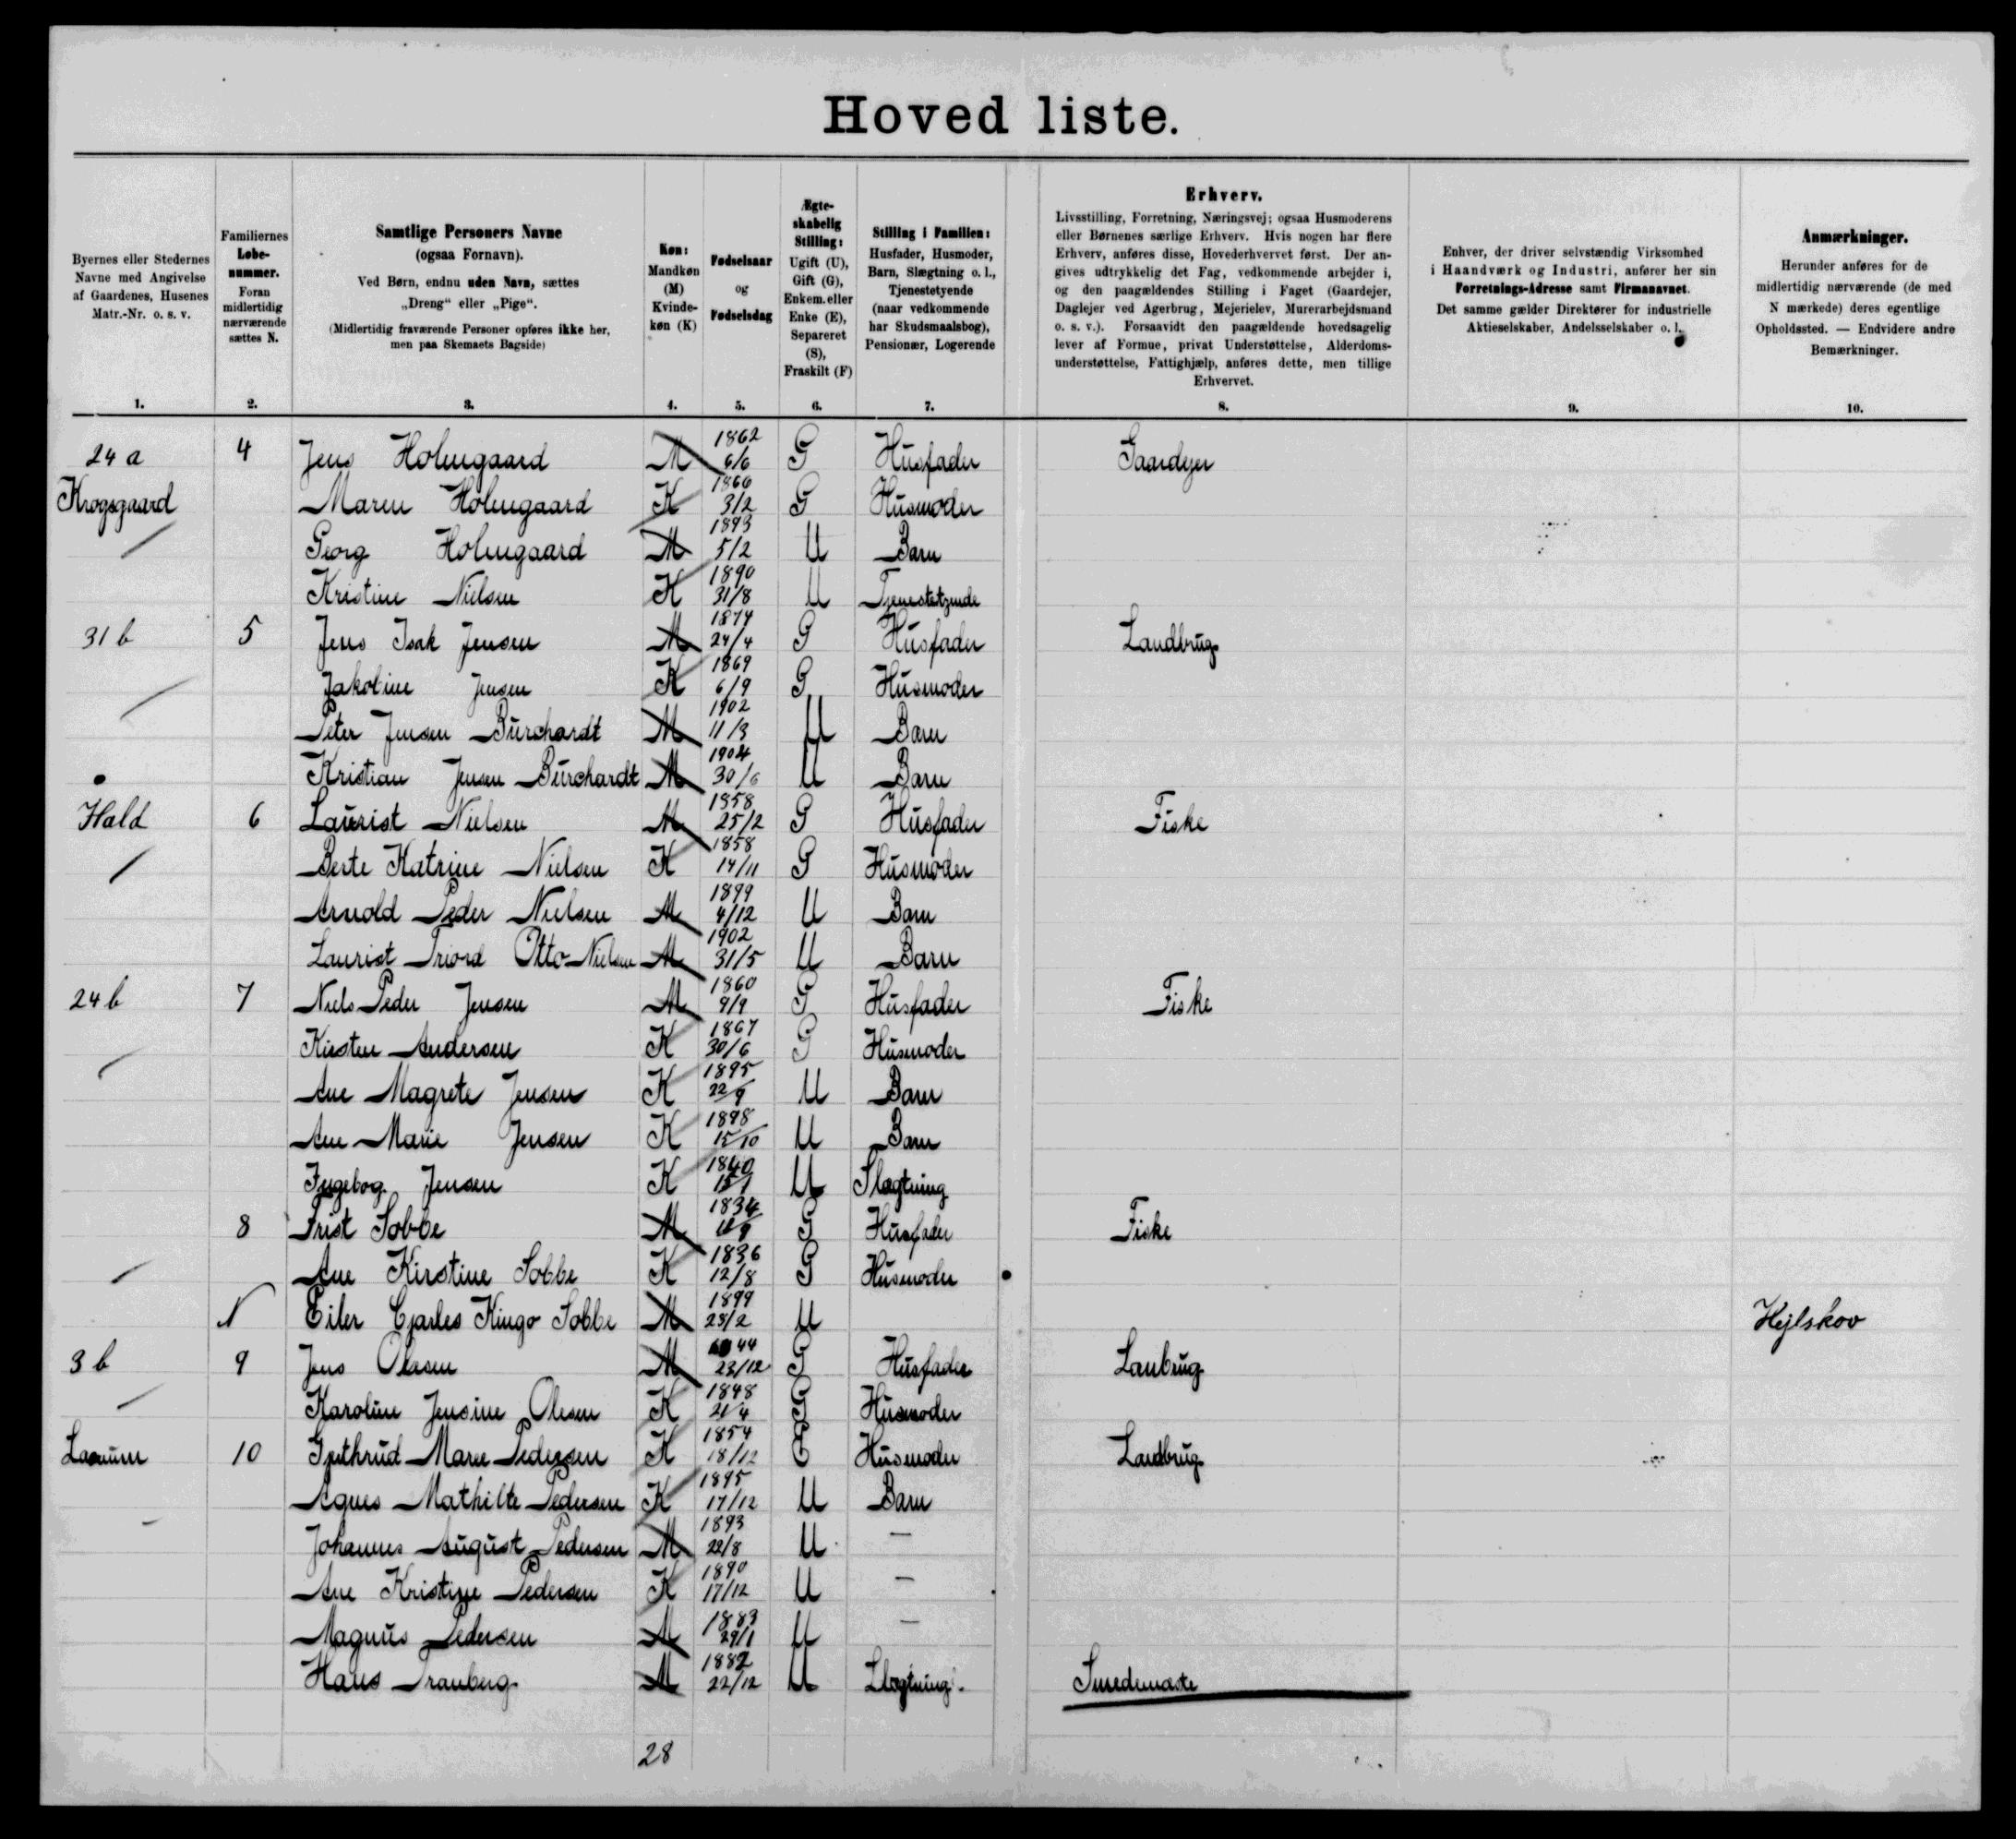 Hoved liste.
Byernes eller Stedernes Navne med Angivelse af Gaardenes, Husenes Matr.-Nr. o. s. v.
Familiernes Løbe-nummer. Foran midlertidig nærværende sættes N.
Samtlige Personers Navne (ogsaa Fornavn). Ved Børn, endnu uden Navn, sættes „Dreng“ eller „Pige“. (Midlertidig fraværende Personer opføres ikke her, men paa Skemaets Bagside)
Køn: Mandkøn (M) Kvinde-køn (K)
Fødselsaar og Fødselsdag
Ægte-skabelig Stilling: Ugift (U), Gift (G), Enkem. eller Enke (E), Separeret (S), Fraskilt (F)
Stilling i Familien: Husfader, Husmoder, Barn, Slægtning o. l., Tjenestetyende (naar vedkommende har Skudsmaalsbog), Pensionær, Logerende
Erhverv.
Livsstilling, Forretning, Næringsvej; ogsaa Husmoderens
eller Børnenes særlige Erhverv. Hvis nogen har flere
Erhverv, anføres disse, Hovederhvervet først. Der an-
gives udtrykkelig det Fag, vedkommende arbejder i,
og den paagældendes Stilling i Faget (Gaardejer,
Daglejer ved Agerbrug, Mejerielev, Murerarbejdsmand
o. s. v.). Forsaavidt den paagældende hovedsagelig
lever af Formue, privat Understøttelse, Alderdoms-
understøttelse, Fattighjælp, anføres dette, men tillige
Erhvervet.
Enhver, der driver selvstændig Virksomhed
i Haandværk og Industri, anfører her sin
Forretnings-Adresse samt Firmanavnet.
Det samme gælder Direktører for industrielle
Aktieselskaber, Andelsselskaber o. l.
Anmærkninger.
Herunder anføres for de
midlertidig nærværende (de med
N mærkede) deres egentlige
Opholdssted. — Endvidere andre
Bemærkninger.
1. 2. 3. 4. 5. 6. 7. 8. 9. 10.
24 a 4 Jens Holmgaard M 1862 6/6 G Husfader Gaardejer
Krogsgaard Maren Holmgaard K 1866 3/2 G Husmoder
Georg Holmgaard M 1893 5/2 U Barn
Kristine Nielsen K 1890 31/8 U Tjenestetyende
31 b 5 Jens Isak Jensen M 1874 24/4 G Husfader Landbrug
Jakoline Jensen K 1869 6/9 G Husmoder
Peter Jensen Burchardt M 1902 11/3 U Barn
Kristian Jensen Burchardt M 1904 30/6 U Barn
Hald 6 Laurist Nielsen M 1858 25/2 G Husfader Fiske
Berte Katrine Nielsen K 1858 14/11 G Husmoder
Arnold Peder Nielsen M 1899 4/12 U Barn
Laurist Otto Nielsen M 1902 31/5 U Barn
24 b 7 Niels Peder Jensen M 1860 9/9 G Husfader Fiske
Kirsten Andersen K 1867 30/6 G Husmoder
Ane Magrete Jensen K 1895 22/9 U Barn
Ane Marie Jensen K 1898 15/10 U Barn
Ingebog Jensen K 1840 U Slægtning
8 Frist Sobbe M 1834 G Husfader Fiske
Ane Kirstine Sobbe K 1836 12/8 G Husmoder
N Eiler Cjarles Kingo Sobbe M 1899 28/2 U Hejlskov
3 b 9 Jens Olesen M 44 23/12 G Husfader Lanbrug
Karoline Jensine Olesen K 1848 21/4 G Husmoder
10 Maree Pedersen K 1854 18/12 E Husmoder Landbrug
Agnes Mathilte Pedersen K 1895 17/12 U Barn
Johannes August Pedersen M 1893 22/8 U —
Ane Kristine Pedersen K 1890 17/12 U —
Magnus Pedersen M 1883 29/1 U —
Hans Tranberg M 1882 22/12 U Slægtning. Smedemaste
28